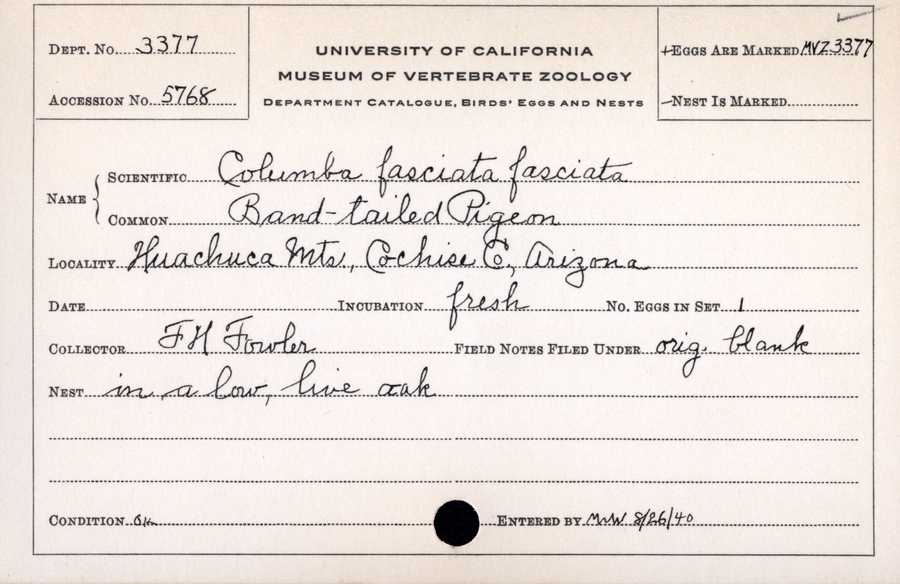 Dept. No. 3377
Accession No. 5768
UNIVERSITY OF CALIFORNIA
MUSEUM OF VERTEBRATE ZOOLOGY
Department Catalogue, Birds' Eggs and Nests
+Eggs Are Marked MVZ 3377
–Nest Is Marked
Name { Scientific Columba fasciata fasciata
Common Band-tailed Pigeon
Locality Huachuca Mts., Cochise Co., Arizona
Date Incubation fresh No. Eggs in Set 1
Collector F H Fowler Field Notes Filed Under orig. blank
Nest in a low, live oak
Condition OK Entered by MWW 8/26/40